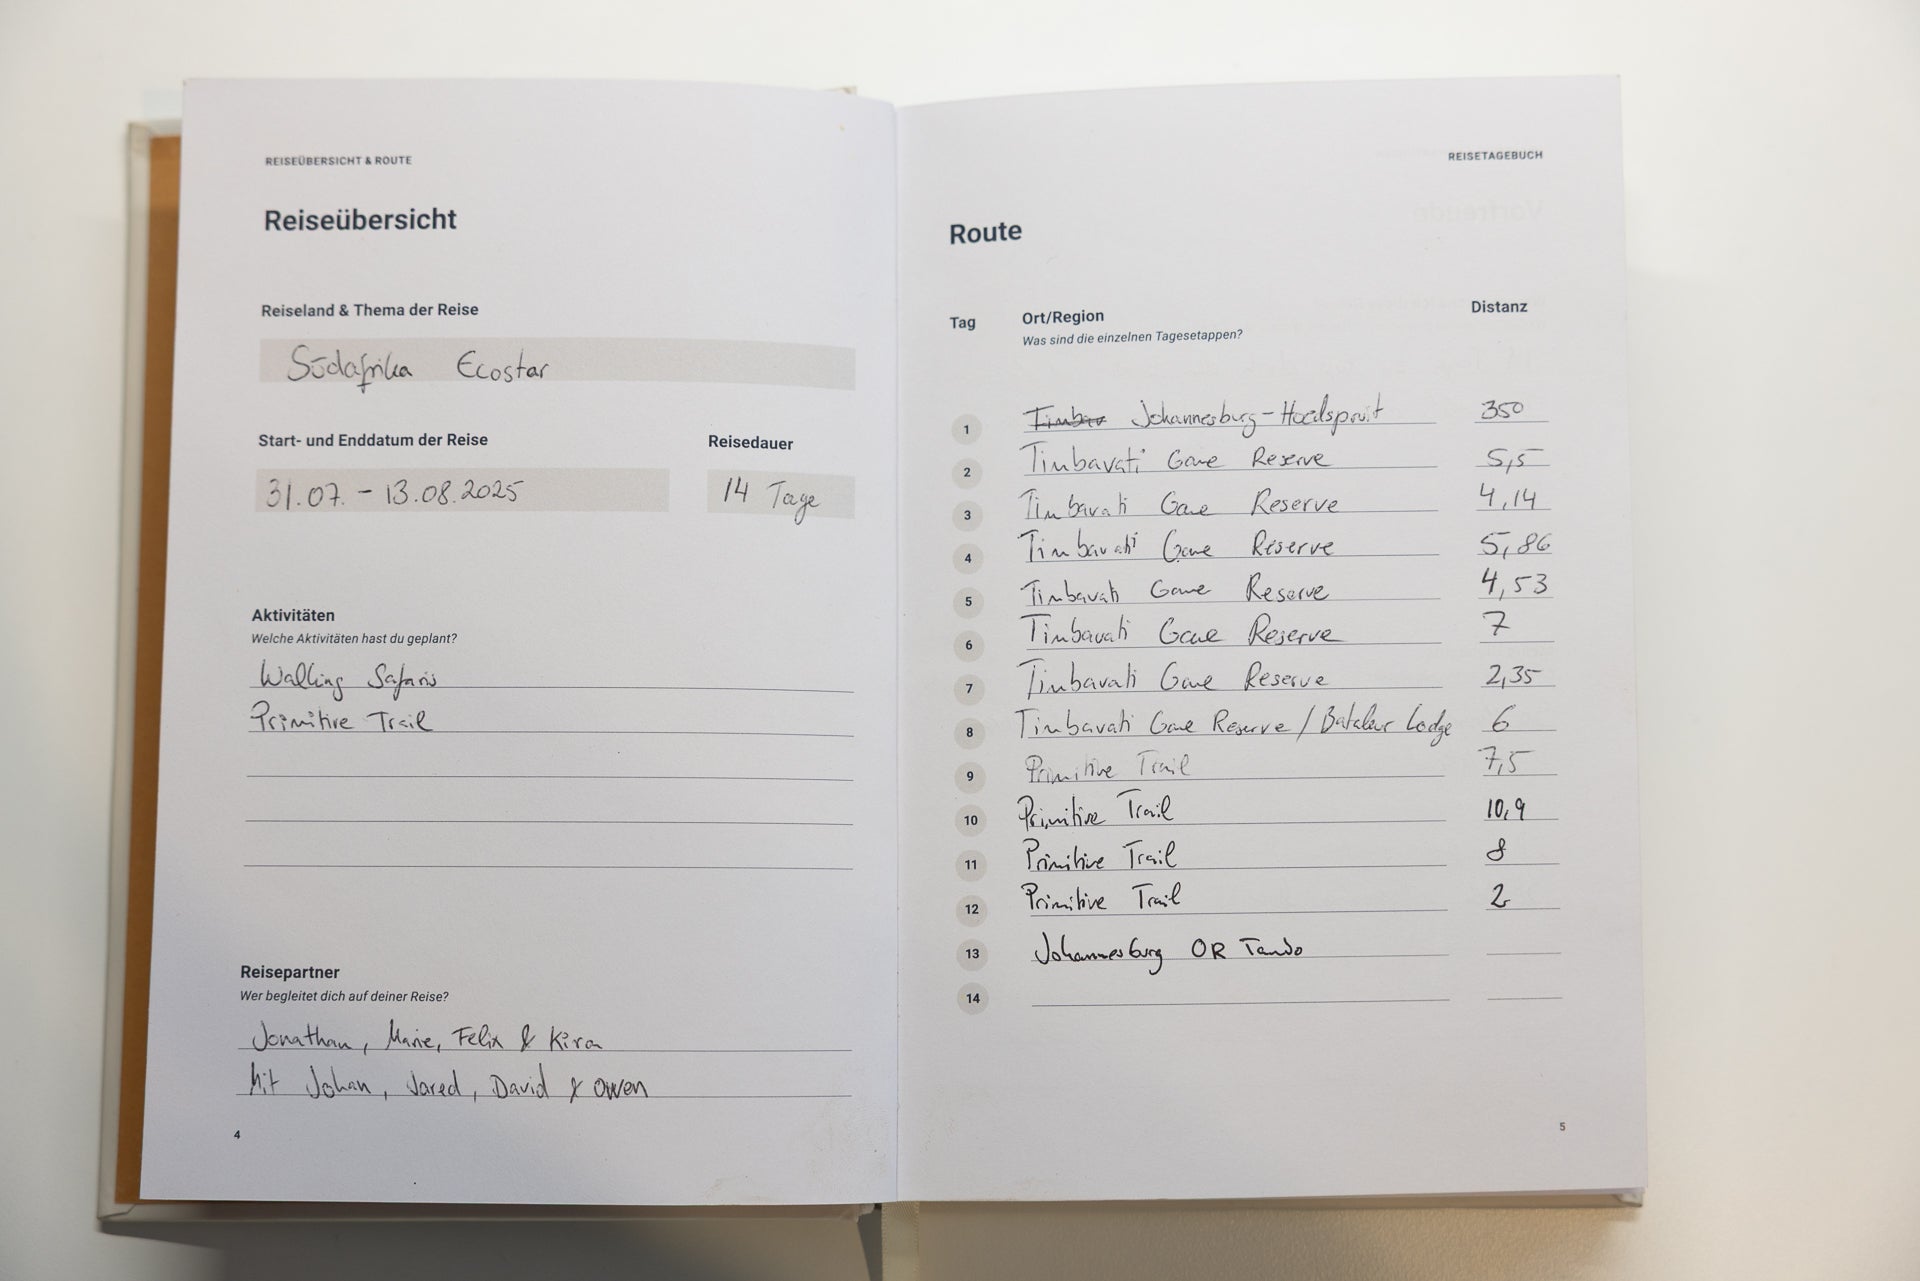 REISEÜBERSICHT & ROUTE
Reiseübersicht
Reiseland & Thema der Reise
Südafrika Ecostar
Start- und Enddatum der Reise
31.07. – 13.08.2025
Reisedauer
14 Tage
Aktivitäten
Welche Aktivitäten hast du geplant?
Walking Safaris
Primitive Trail
Reisepartner
Wer begleitet dich auf deiner Reise?
Jonathan, Marie, Felix & Kira
Mit Johan, Jared, David & Owen
4
REISETAGEBUCH
Route
Tag Ort/Region Distanz
Was sind die einzelnen Tagesetappen?
1 Johannesburg – Hoedspruit 350
2 Timbavati Game Reserve 5,5
3 Timbavati Game Reserve 4,14
4 Timbavati Game Reserve 5,86
5 Timbavati Game Reserve 4,53
6 Timbavati Game Reserve 7
7 Timbavati Game Reserve 2,35
8 Timbavati Game Reserve / Bataleur Lodge 6
9 Primitive Trail 7,5
10 Primitive Trail 10,9
11 Primitive Trail 8
12 Primitive Trail 2
13 Johannesburg OR Tambo
14
5